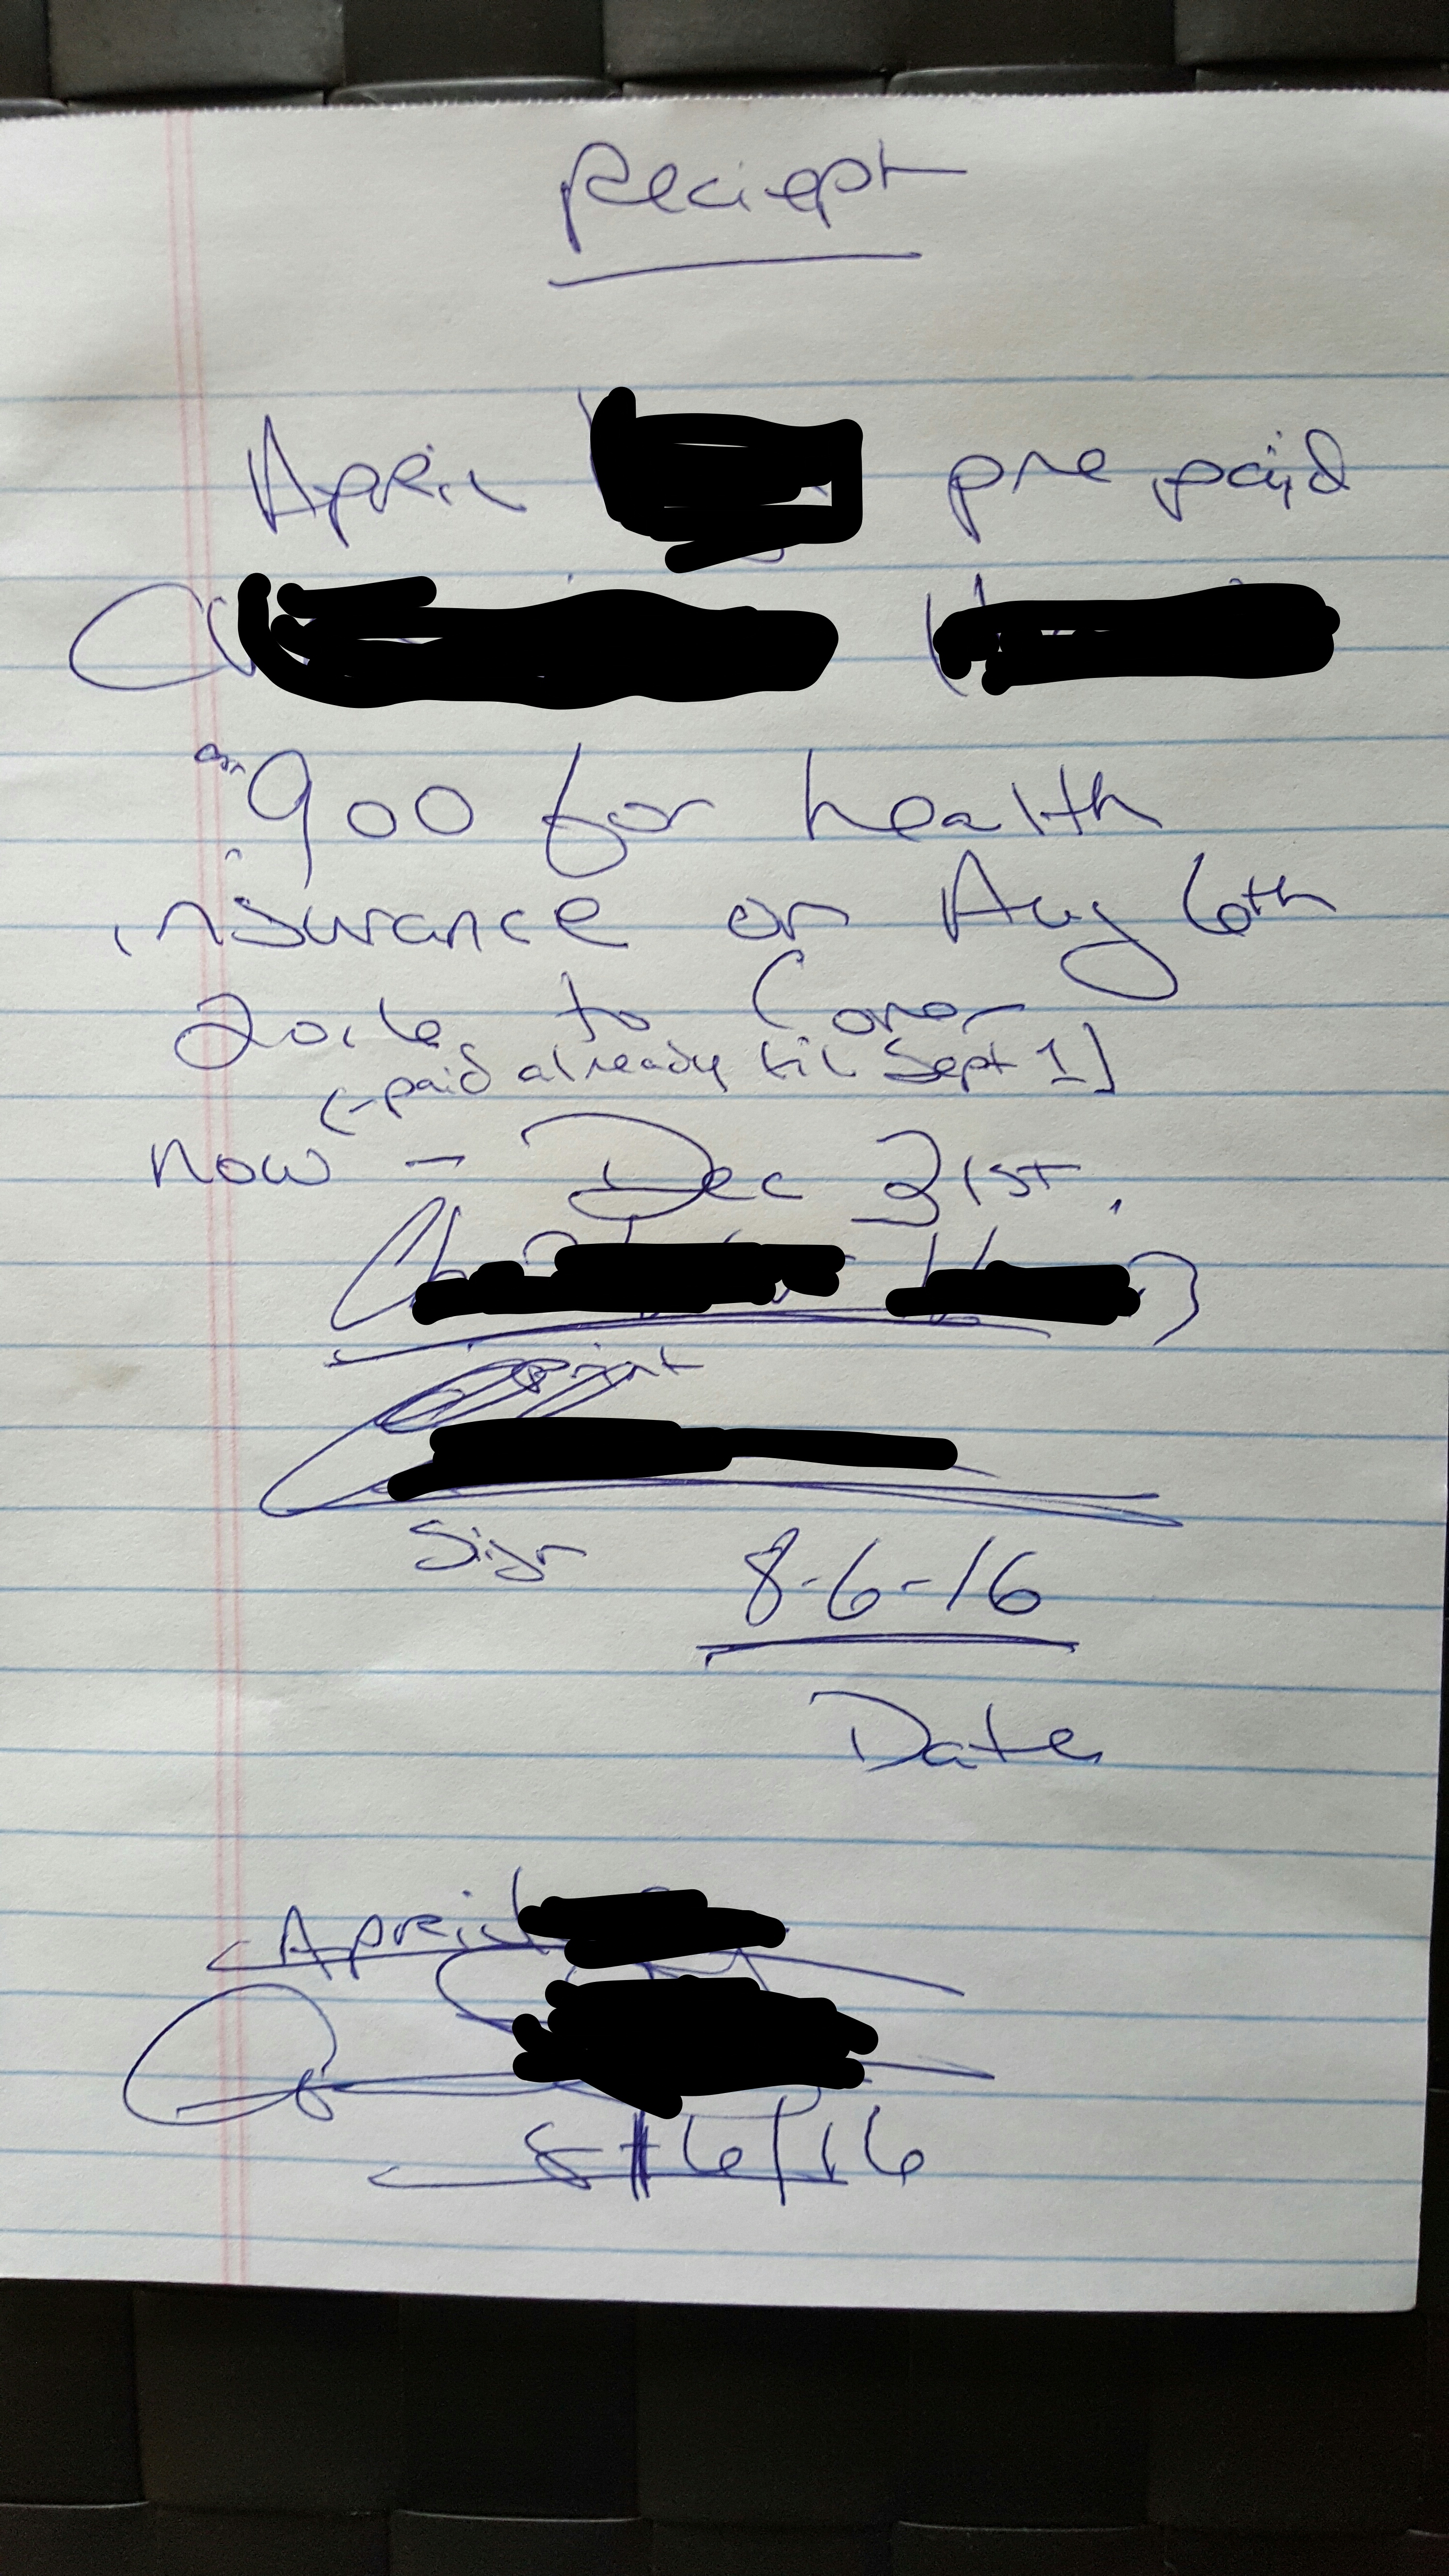 Reciept
April pre paid
900 for health
insurance on Aug 6th
2016 to Cover
(-paid already til Sept 1)
now - Dec 31st.
print
Sign 8-6-16
Date
April
8/6/16